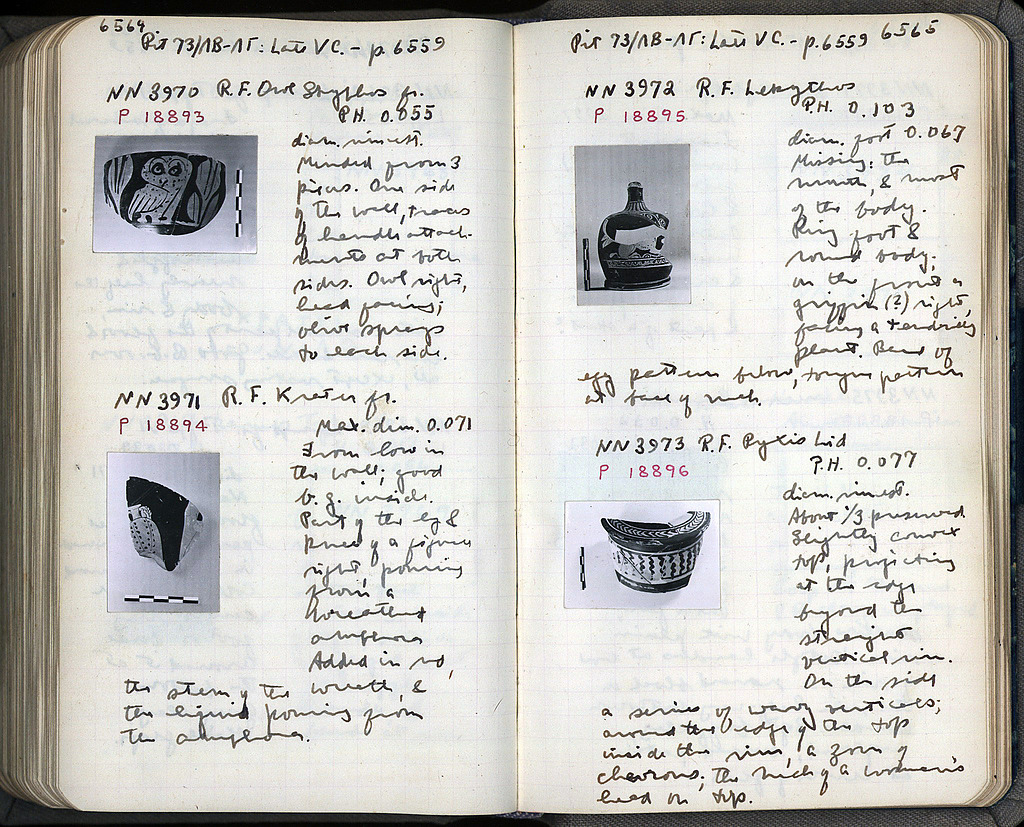 6564.
Pit 73/ΛB-ΛΓ: Late V C. - p. 6559
NN 3970 R.F. Owl Skyphos fr.
P 18893 P.H. 0.055
diam. rim est.
Mended from 3
pieces. One side
of the wall, traces
of handle attach-
ments at both
sides. Owl right,
head facing;
olive sprays
to each side.
NN 3971 R.F. Krater fr.
P 18894 Max. dim. 0.071
From low in
the wall; good
b.g. inside.
Part of the leg &
knee of a figure
right, pouring
from a
wreathed
amphora
Added in red,
the stem of the wreath, &
the liquid pouring from
the amphora.
Pit 73/ΛB-ΛΓ: Late V C. - p. 6559 6565
NN 3972 R.F. Lekythos
P 18895 P.H. 0.103
diam. foot 0.067
Missing: the
mouth, & most
of the body.
Ring foot &
round body;
on the front a
griffin (?) right,
facing a tendrilly
plant. Band of
egg pattern below, tongue pattern
at base of neck.
NN 3973 R.F. Pyxis Lid
P 18896 P.H. 0.077
diam. rim est.
About 1/3 preserved
Slightly convex
top, projecting
at the edge
beyond the
straight
vertical rim.
On the side
a series of wavy verticals;
around the edge of the top
inside the rim, a zone of
chevrons; the neck of a woman's
head on top.